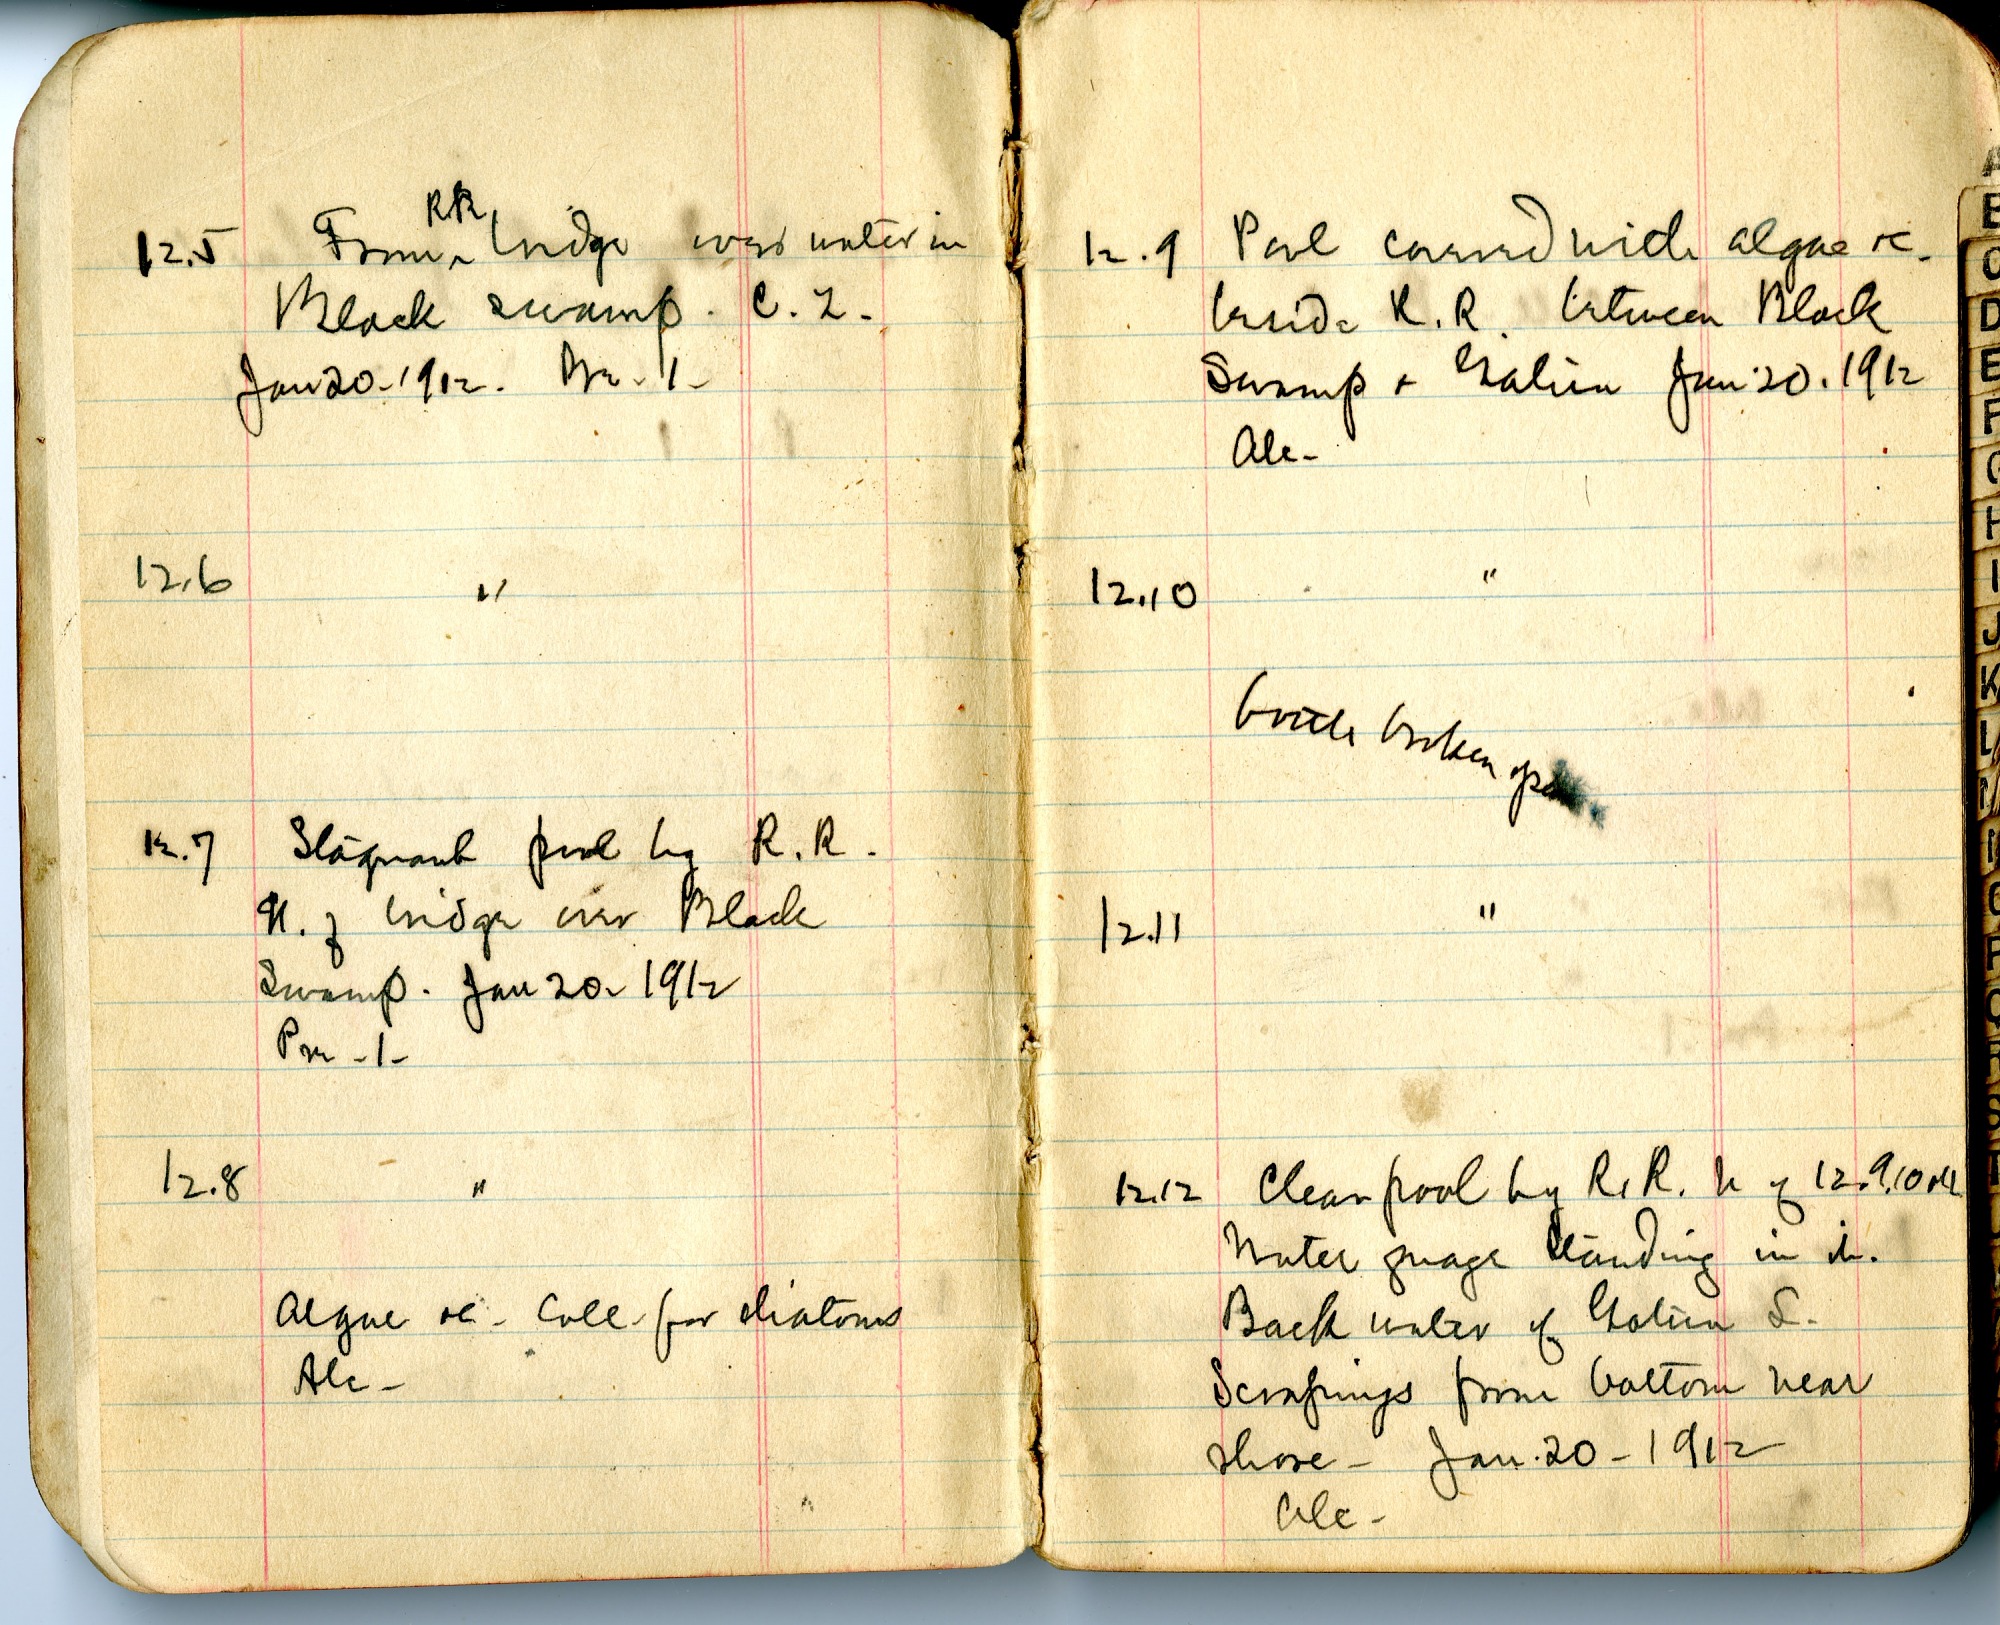 12.5 From RR bridge over water in
Black swamp. C. Z.
Jan 20-1912. Pr. 1-
12.6 "
12.7 Stagnant pool by R.R.
N. of bridge over Black
Swamp. Jan 20-1912
Pr -1-
12.8 "
Algae &c. Coll. for diatoms
Alc-
12.9 Pool covered with algae &c.
beside R.R. between Black
Swamp + Gatun Jan 20. 1912
Alc-
12.10 "
bottle broken
12.11 "
12.12 Clear pool by R.R. N of 12.9,10 &11
Water guage standing in it.
Back water of Gatun L.
Scrapings from bottom near
shore - Jan. 20 - 1912
Alc-
A
B
C
D
E
F
G
H
I
J
K
L
M
N
O
P
Q
R
S